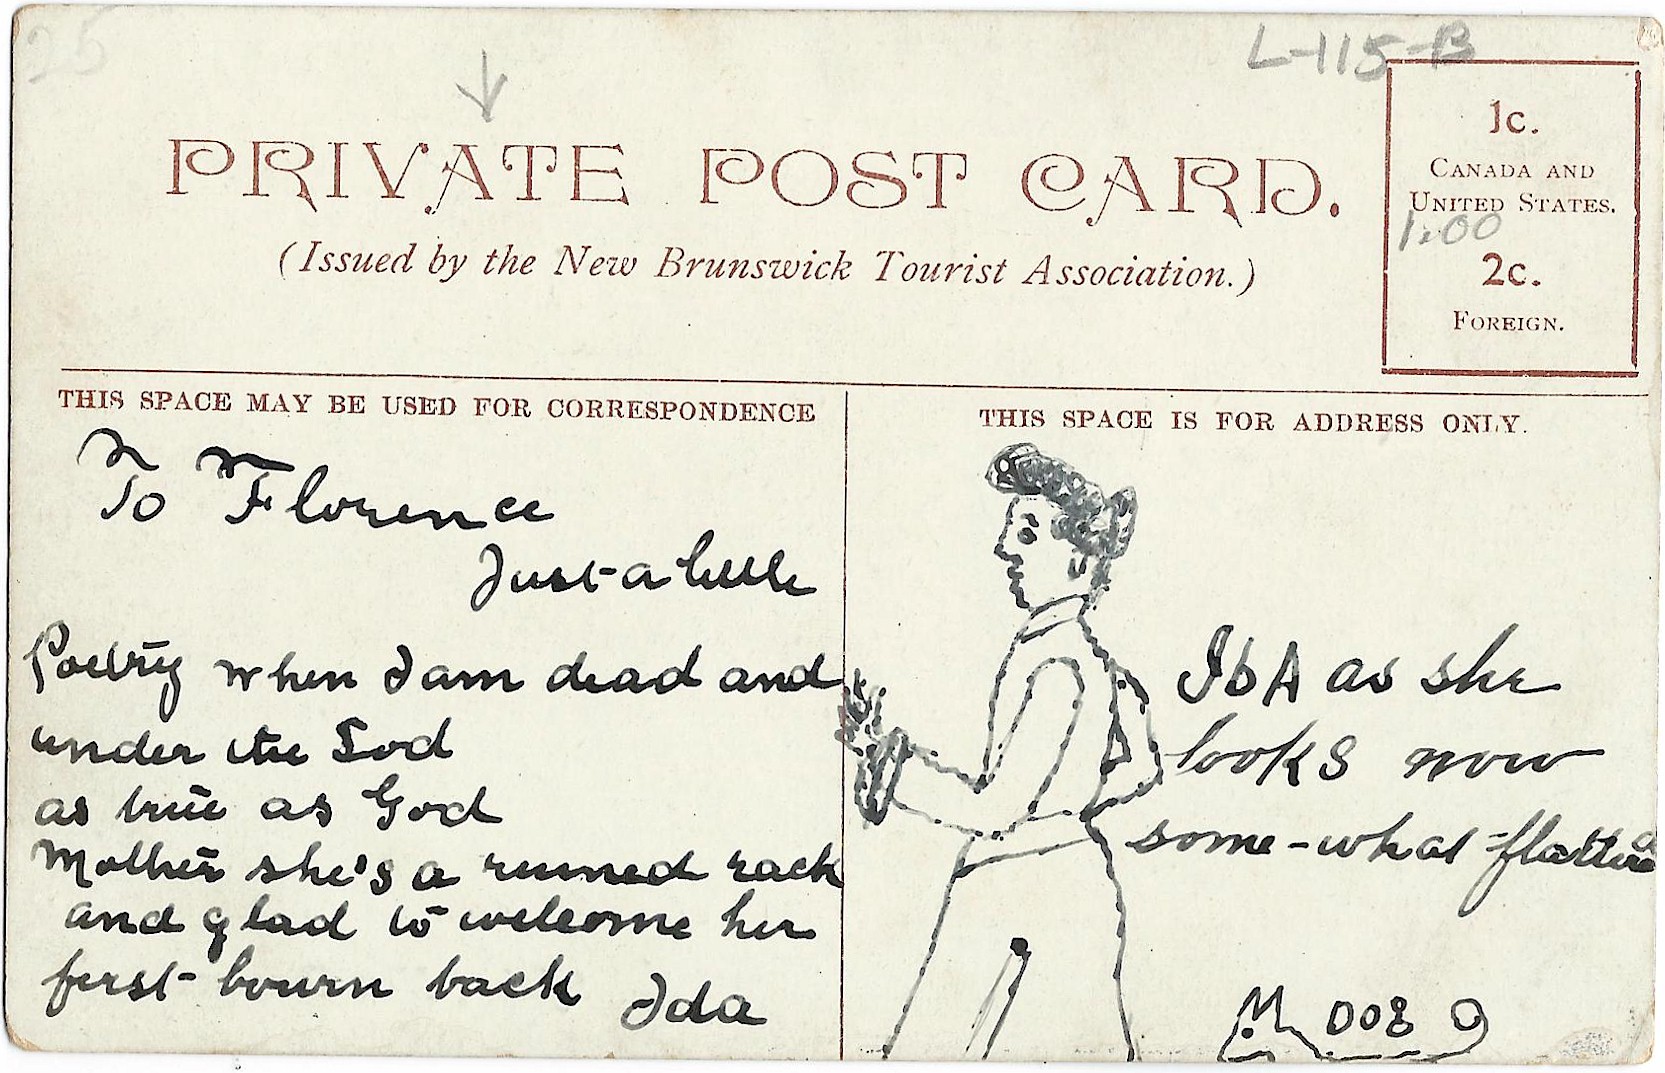 25
L-115-B
PRIVATE POST CARD.
(Issued by the New Brunswick Tourist Association.)
1c.
CANADA AND
UNITED STATES.
1.00
2c.
FOREIGN.
THIS SPACE MAY BE USED FOR CORRESPONDENCE
To Florence
Just a little
Poetry when I am dead and
under the Sod
as true as God
Mother she's a ruined rack
and glad to welcome her
first bourn back
Ida
THIS SPACE IS FOR ADDRESS ONLY.
IdA as she
looks now
some-what-flattered